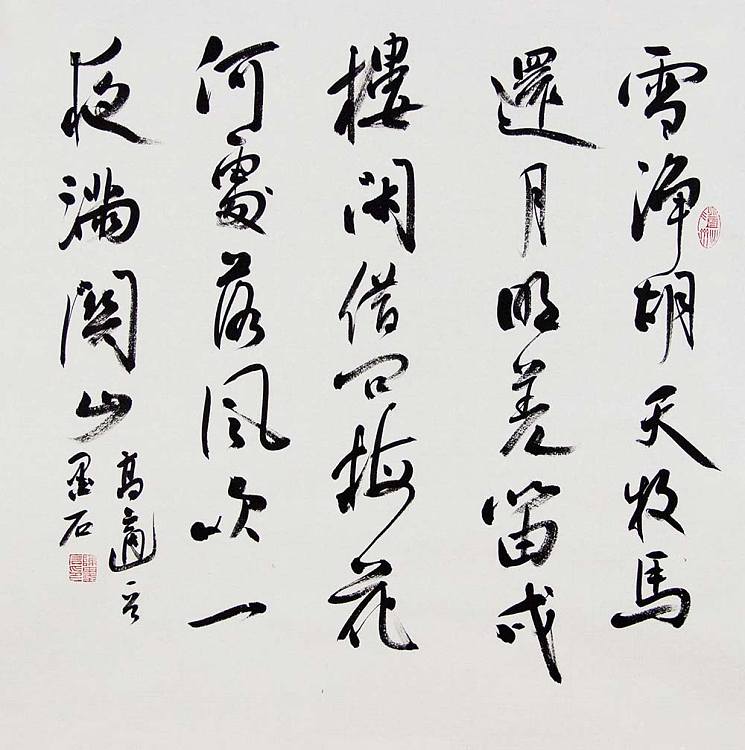 雪淨胡天牧馬
還月明羌笛戍
樓閑借問梅花
何處落風吹一
夜滿關山
高適
墨石